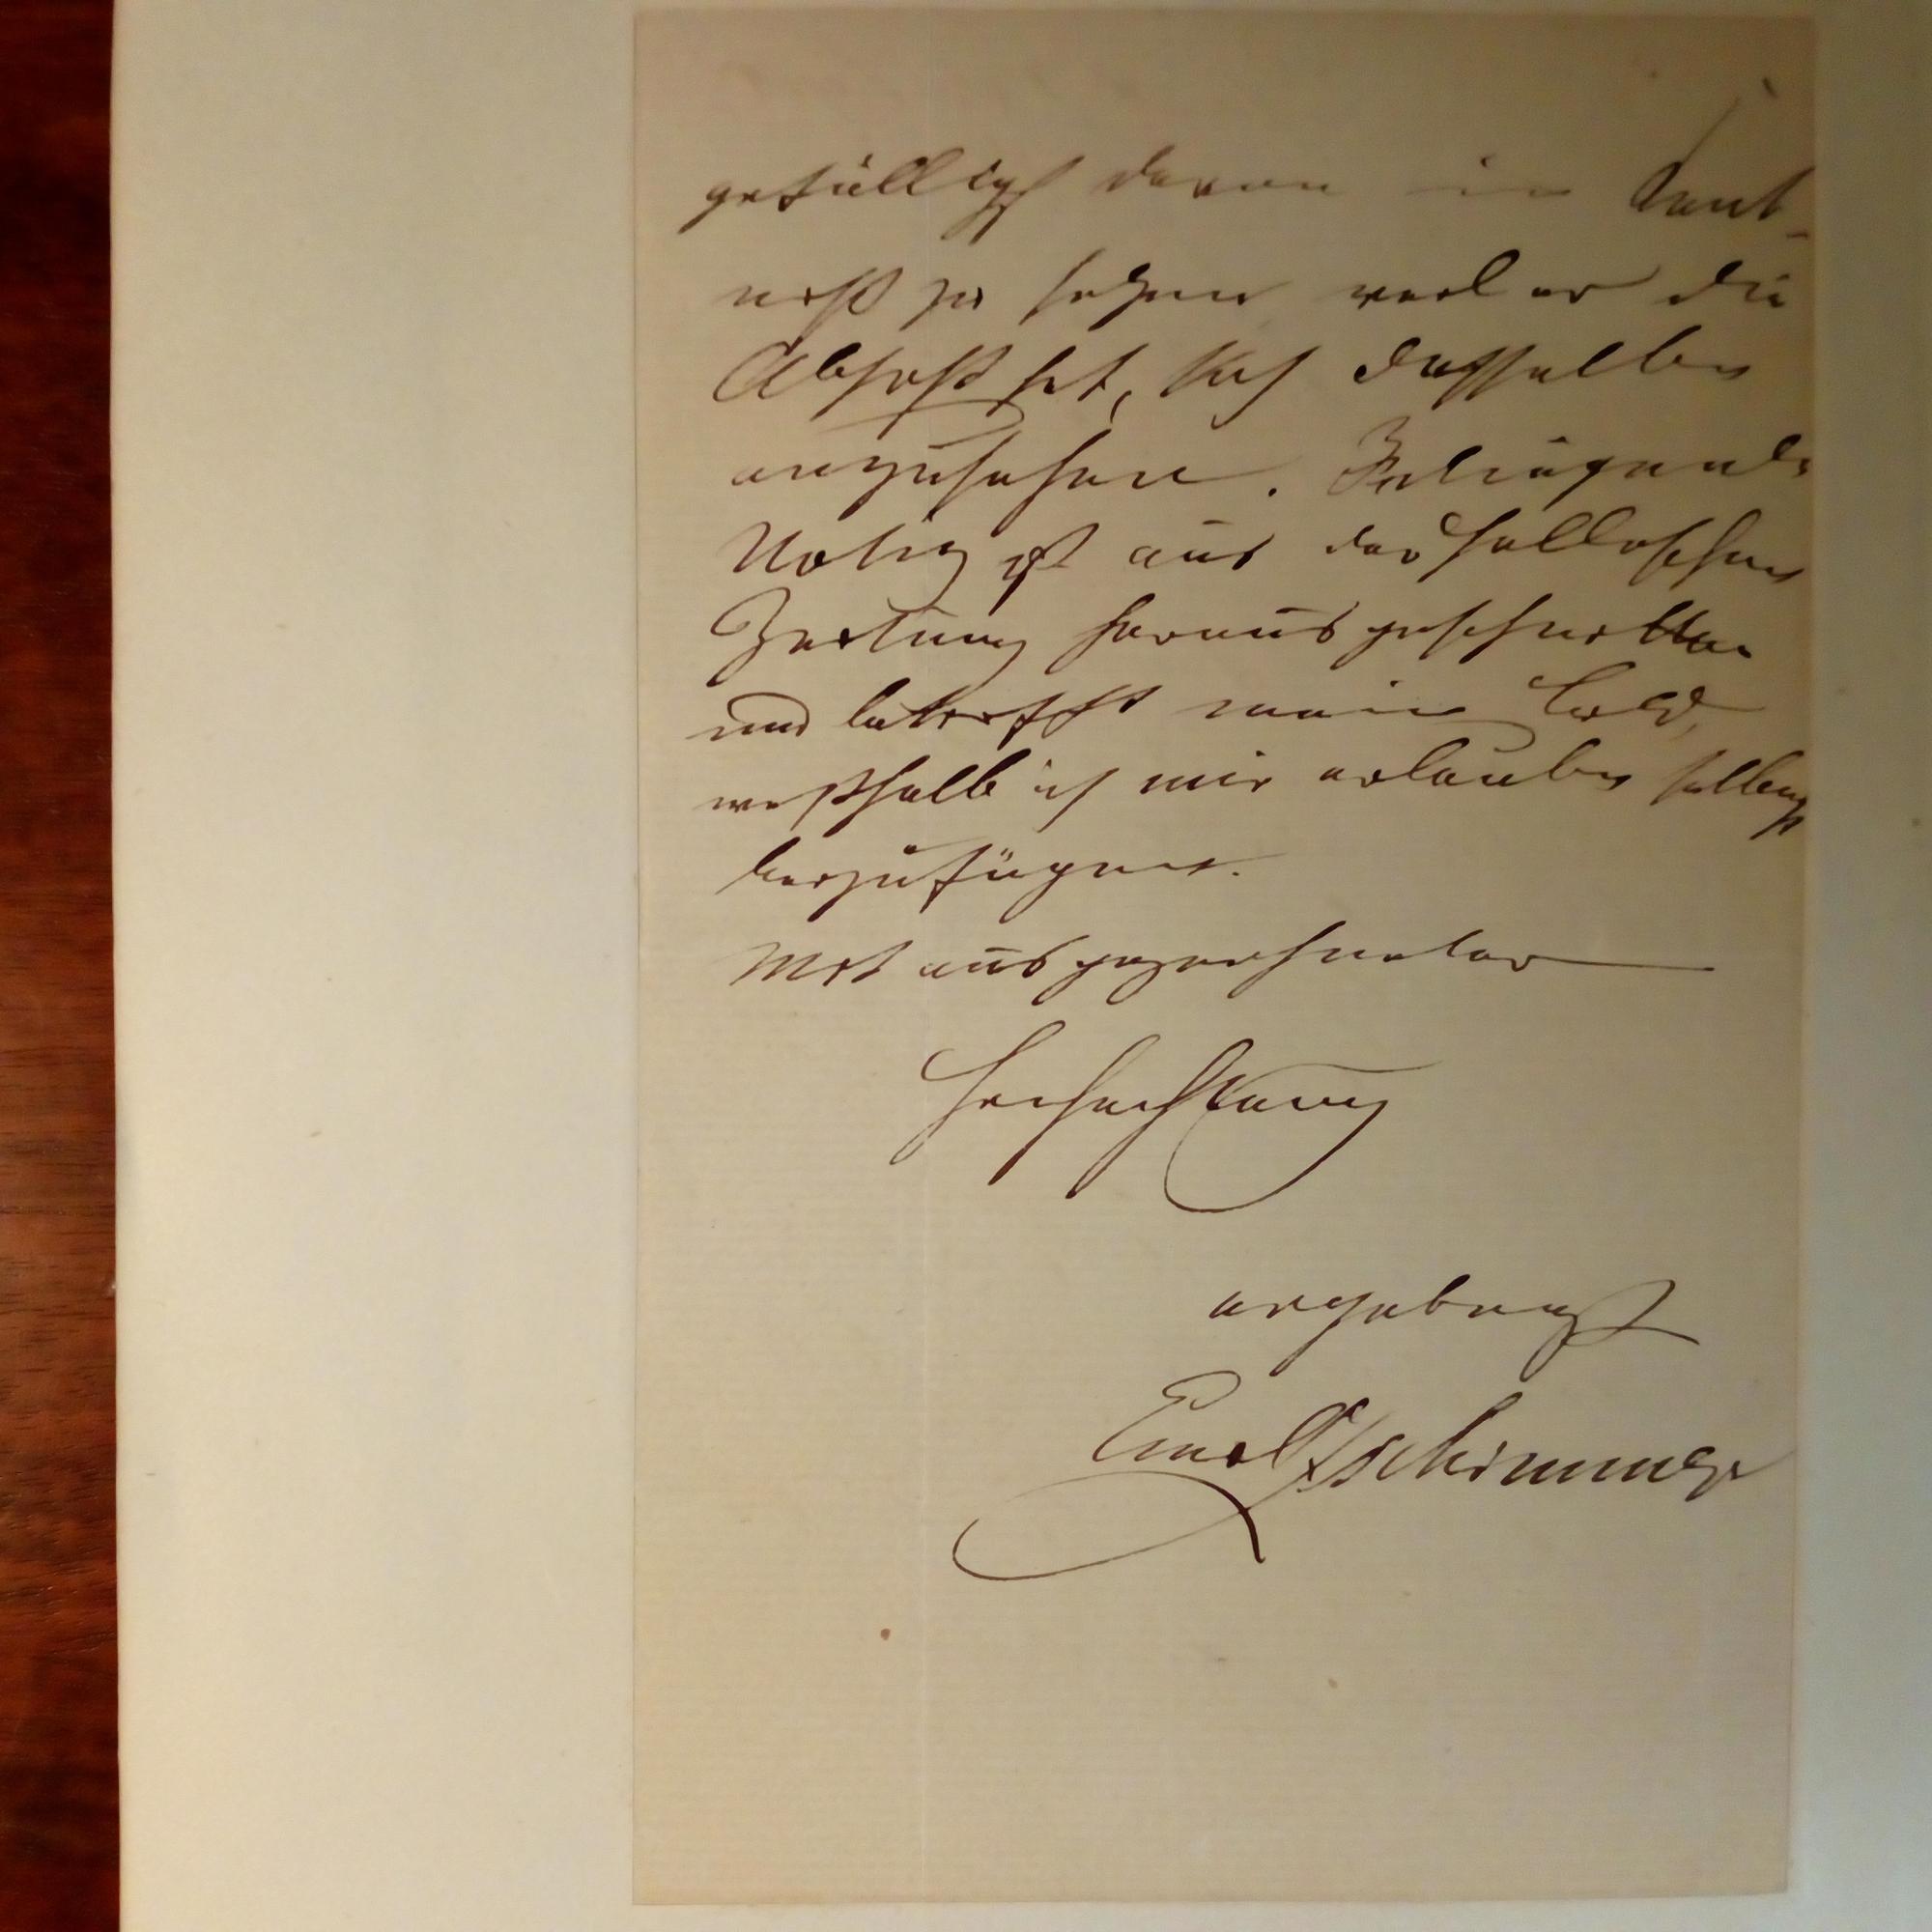 gefälligst davon in Kent-
niß zu setzen weil er die
Absicht hat, sich dasselbe
anzusehen. Beliegende
Notiz ist aus der Hallischen
Zeitung herausgeschnitten
und betrifft mein Bild,
weßhalb ich mir erlaube selbige
beizufügen.
Mit ausgezeichneter
Hochachtung
ergebenst
Emil Tschimmer